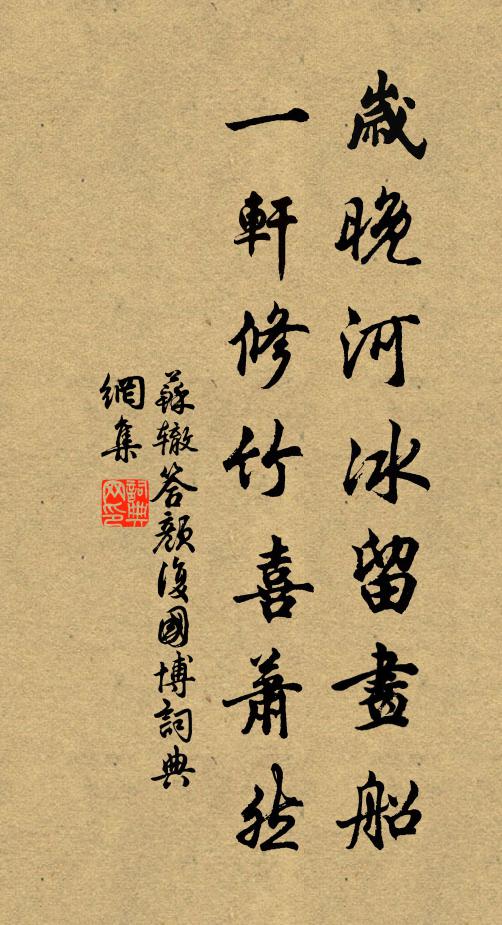 歲晚河冰留畫船
一軒修竹喜蕭然
蘇轍答顏復國博詞典
網集
詞典
网印